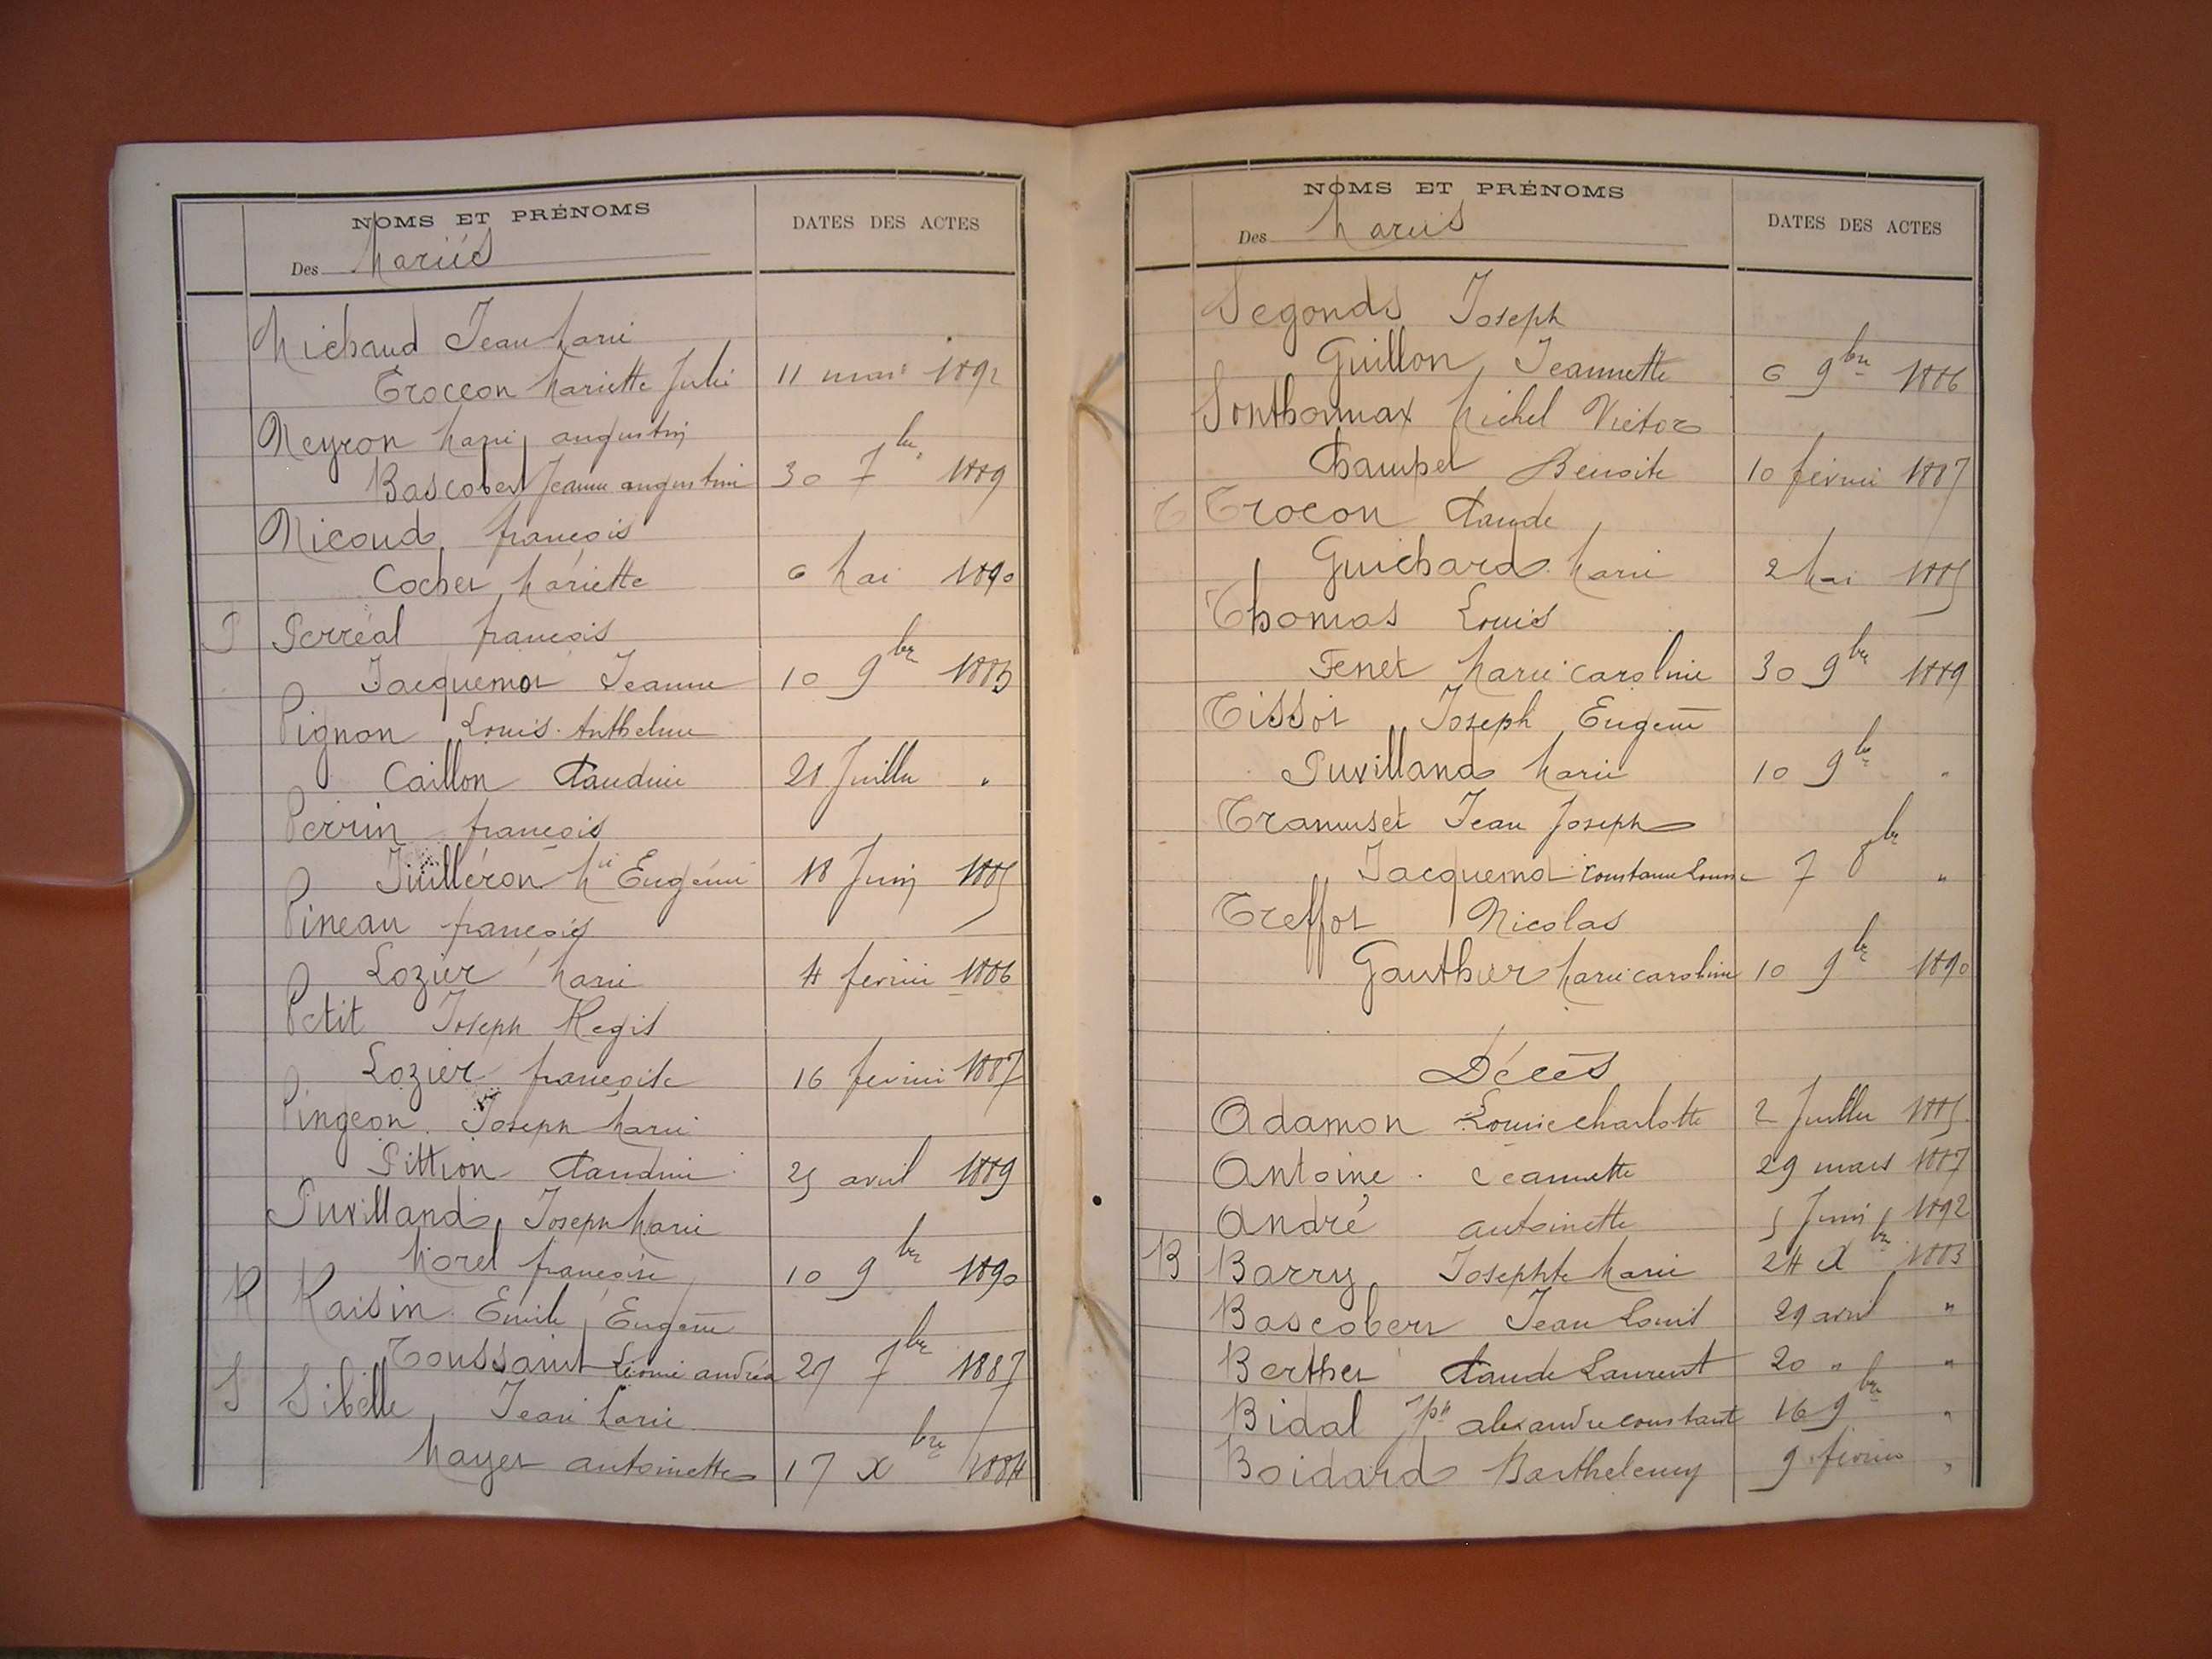 NOMS ET PRÉNOMS
DATES DES ACTES
Des Mariés
Michaud Jean Marie
Troccon Mariette Julie 11 mars 1892
Neyron Marie augustin
Bascober Jeanne augustine 30 7bre 1889
Nicoud françois
Cocher Mariette 6 Mai 1890
P Perréal françois
Jacquemot Jeanne 10 9bre 1883
Pignon Louis Anthelme
Caillon Claudine 21 Juillet "
Perrin françois
Juilléron Mie Eugénie 18 Juin 1885
Pineau françois
Lozier Marie 4 février 1886
Petit Joseph Regis
Lozier françoise 16 février 1887
Pingeon Joseph Marie
Pittion Claudine 25 avril 1889
Puvilland Joseph Marie
Morel françoise 10 9bre 1890
R Raisin Emile Eugène
Toussaint Léonie andréa 27 7bre 1887
S Sibelle Jean Marie
Mayer antoinette 17 Xbre 1884
NOMS ET PRÉNOMS
DATES DES ACTES
Des Mariés
Segonds Joseph
Guillon Jeannette 6 9bre 1886
Sonthonnax Michel Victor
Champel Benoite 10 février 1887
T Trocon Claude
Guichard Marie 2 Mai 1885
Thomas Louis
Fenet Marie caroline 30 9bre 1889
Tissot Joseph Eugène
Puvilland Marie 10 9bre "
Tramuset Jean Joseph
Jacquemot constance Louise 7 8bre "
Treffot Nicolas
Gauthier Marie caroline 10 9bre 1890
Décès
Adamon Louise charlotte 2 Juillet 1885
Antoine Jeannette 29 mars 1887
André antoinette 5 Juin 1892
B Barry Josephte Marie 24 Xbre 1883
Bascober Jean Louis 29 avril "
Berther Claude Laurent 20 " "
Bidal Jph alexandre constant 16 9bre "
Boidard Barthelemy 9 février "